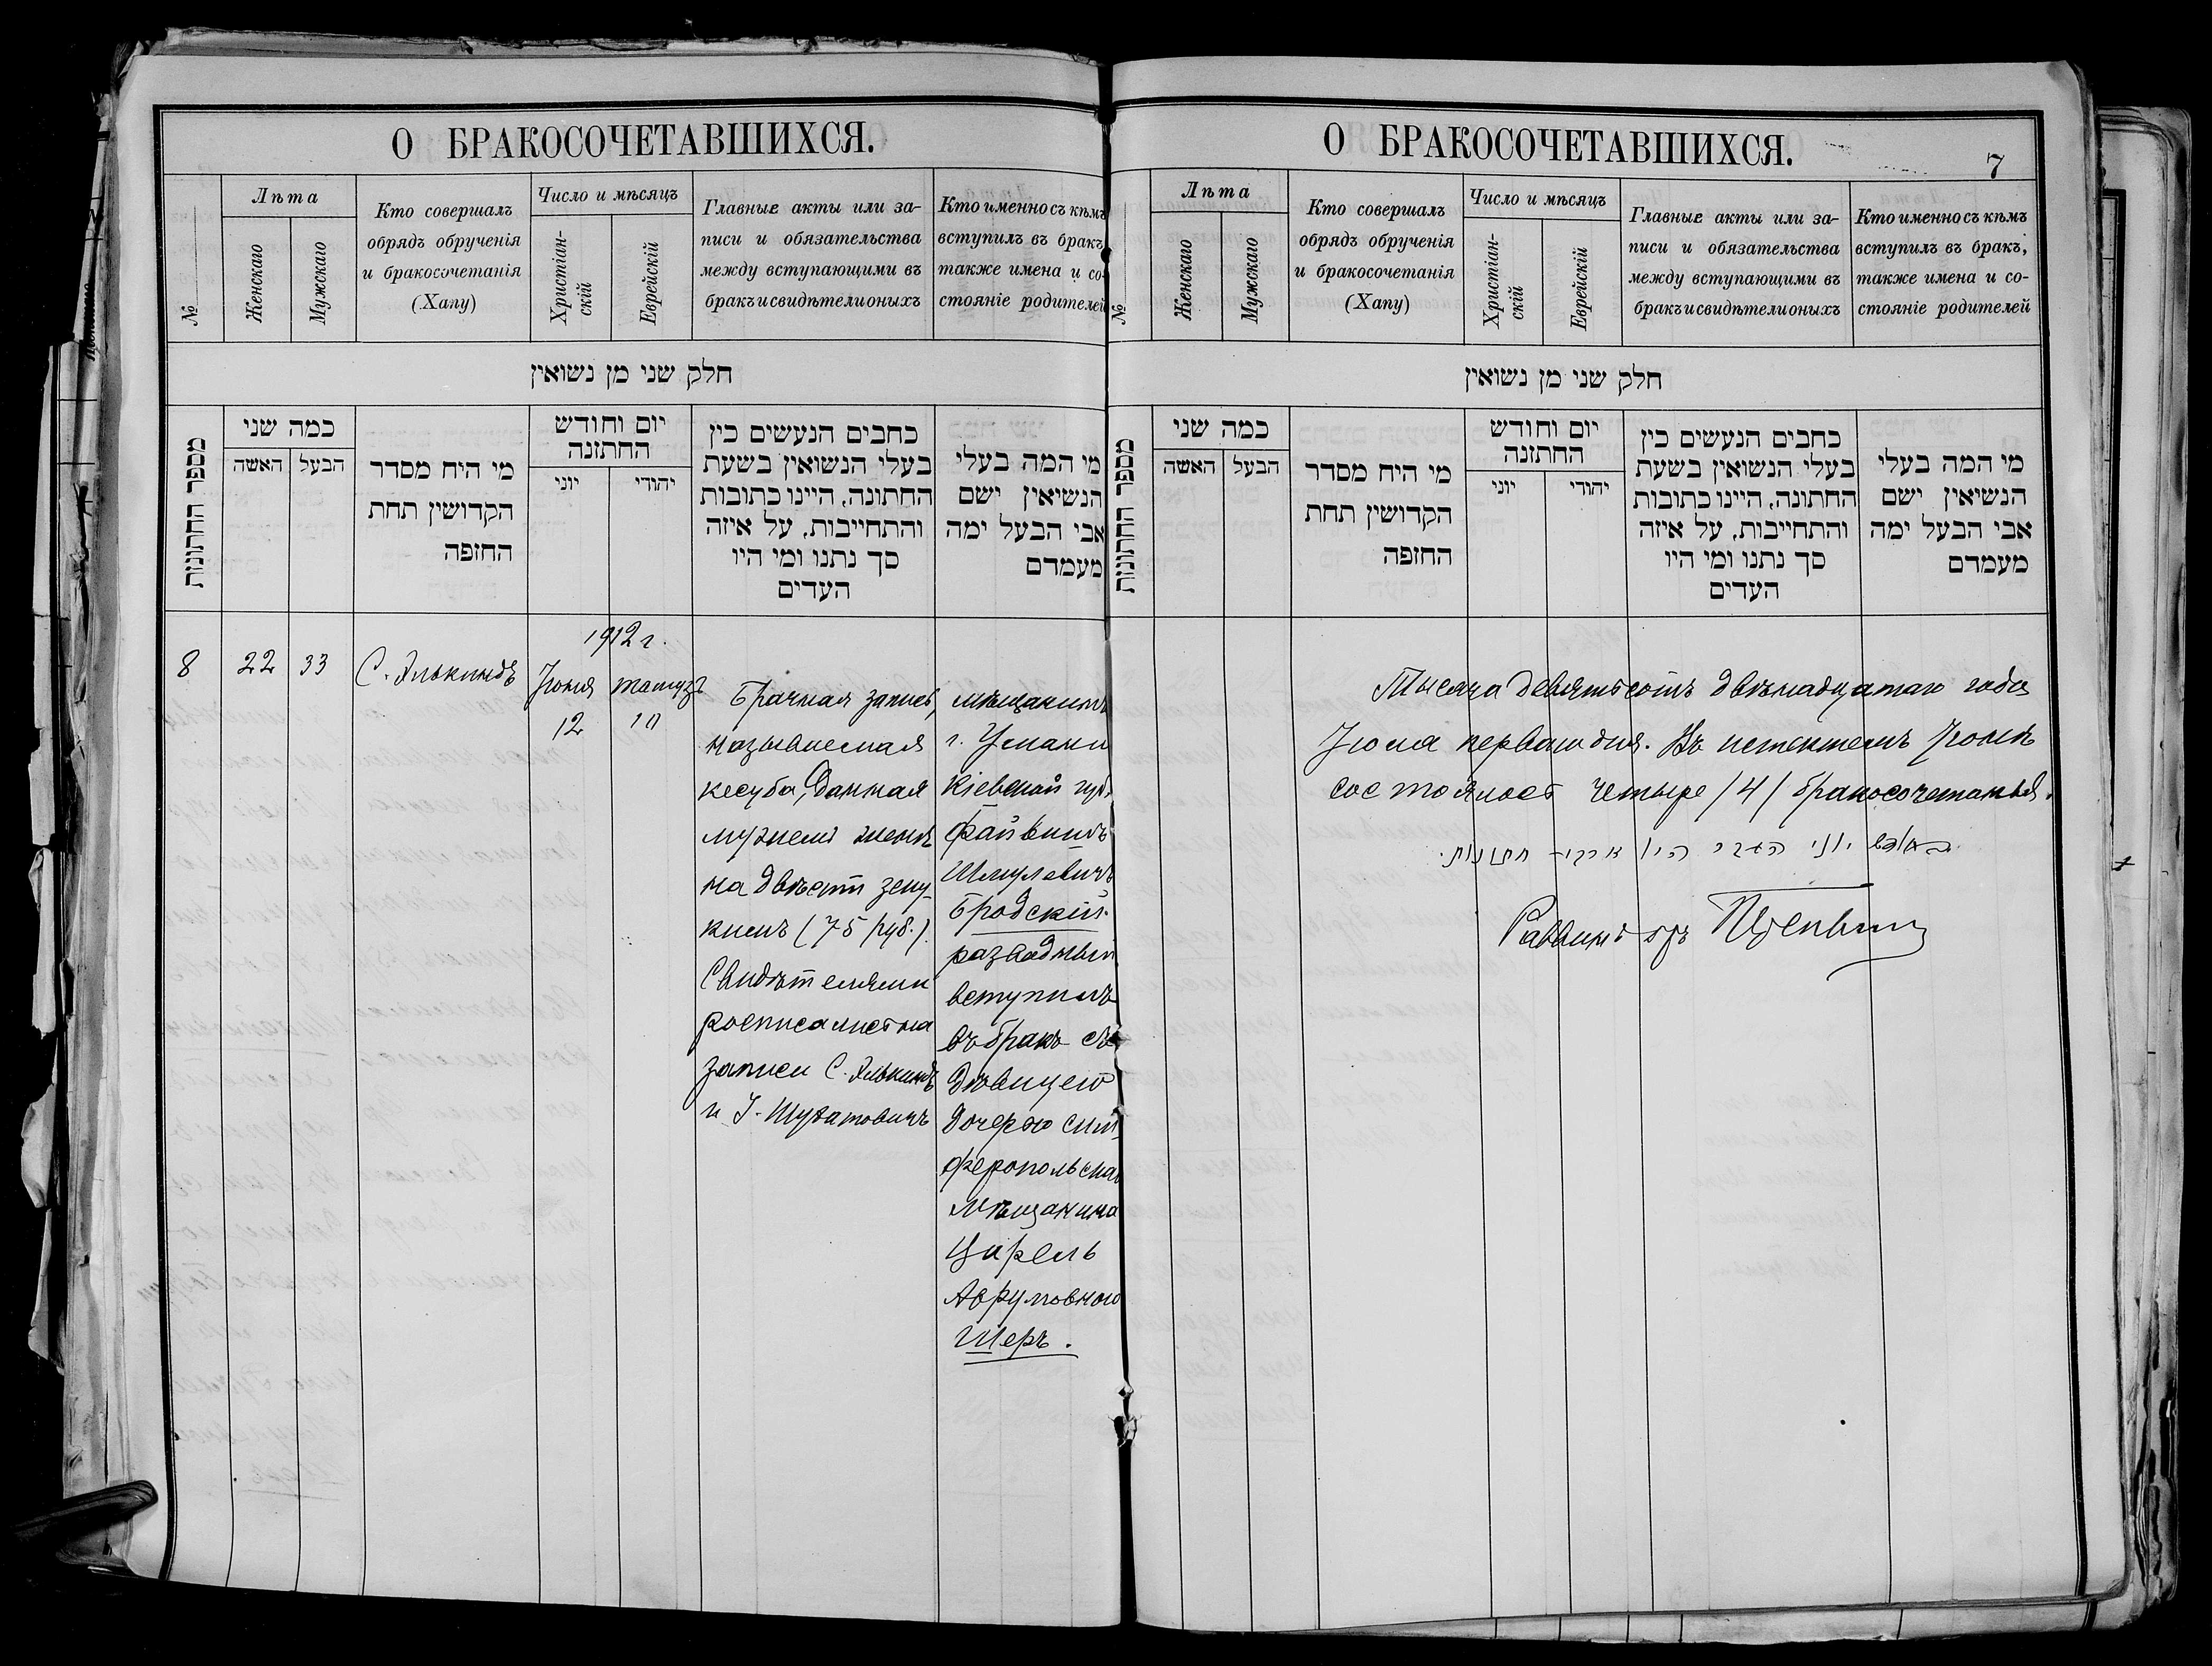 О БРАКОСОЧЕТАВШИХСЯ.
№
Лѣта
Женскаго
Мужскаго
Кто совершалъ
обрядъ обрученія
и бракосочетанія
(Хапу)
Число и мѣсяцъ
Христіан-
скій
Еврейскій
Главные акты или за-
писи и обязательства
между вступающими въ
бракъ и свидѣтели оныхъ
Кто именно съ кѣмъ
вступилъ въ бракъ,
также имена и со-
стояніе родителей
חלק שני מן נשואין
מספר החתונות
כמה שני
האשה
הבעל
מי היח מסדר
הקדושין תחת
החזפה
יום וחודש
החתזנה
יוני
יהודי
כחבים הנעשים כין
בעלי הנשואין בשעת
החתונה, היינו כתובות
והתחייבות, על איזה
סך נתנו ומי היו
העדים
מי המה בעלי
הנשיאין ישם
אבי הבעל ימה
מעמדם
1912 г.
8
22
33
С. Элькиндъ
Іюня
12
Тамузъ
10
Брачная запись,
называемая
кесуба, данная
мужемъ женѣ
на двѣсти зеку
кимъ (75 руб.).
Свидѣтелями
росписались на
записи С. Элькиндъ
и
мѣщанинъ
г. Умани
Кіевской губ.
Файвишъ
Шмулевичъ
Бродскій
разводный
вступилъ
въ бракъ съ
дѣвицею
дочерью сим
феропольскаго
мѣщанина
Цирель
Аврумовною
Шеръ.
О БРАКОСОЧЕТАВШИХСЯ.
7
№
Лѣта
Женскаго
Мужскаго
Кто совершалъ
обрядъ обрученія
и бракосочетанія
(Хапу)
Число и мѣсяцъ
Христіан-
скій
Еврейскій
Главные акты или за-
писи и обязательства
между вступающими въ
бракъ и свидѣтели оныхъ
Кто именно съ кѣмъ
вступилъ въ бракъ,
также имена и со-
стояніе родителей
חלק שני מן נשואין
מספר החתונות
כמה שני
האשה
הבעל
מי היח מסדר
הקדושין תחת
החזפה
יום וחודש
החתזנה
יוני
יהודי
כחבים הנעשים כין
בעלי הנשואין בשעת
החתונה, היינו כתובות
והתחייבות, על איזה
סך נתנו ומי היו
העדים
מי המה בעלי
הנשיאין ישם
אבי הבעל ימה
מעמדם
Тысяча девятьсотъ двѣнадцатаго года
Іюля перваго дня. Въ истекшемъ Іюнѣ
состоялось четыре /4/ бракосочетанья.
יוני היו חתונות.
Раввинъ